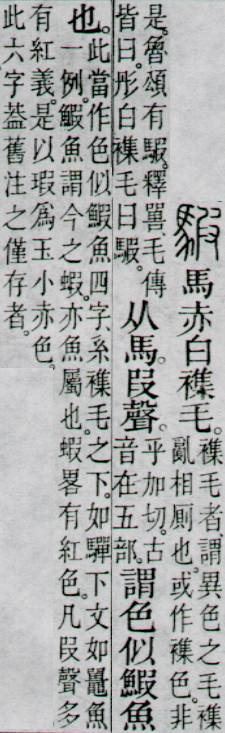 騢馬赤白襍毛。襍毛者。謂異色之毛襍
亂相廁也。或作襍色。非
是。魯頌有騢。釋嘼、毛傳
皆曰。彤白襍毛曰騢。
从馬叚聲。乎加切。古
音在五部。
謂色似鰕魚
也。此當作色似鰕魚四字、系襍毛之下。如驒下文如鼉魚
一例。鰕魚謂今之蝦。亦魚屬也。蝦畧有紅色。凡叚聲多
有紅義。是以瑕爲玉小赤色。
此六字葢舊注之僅存者。